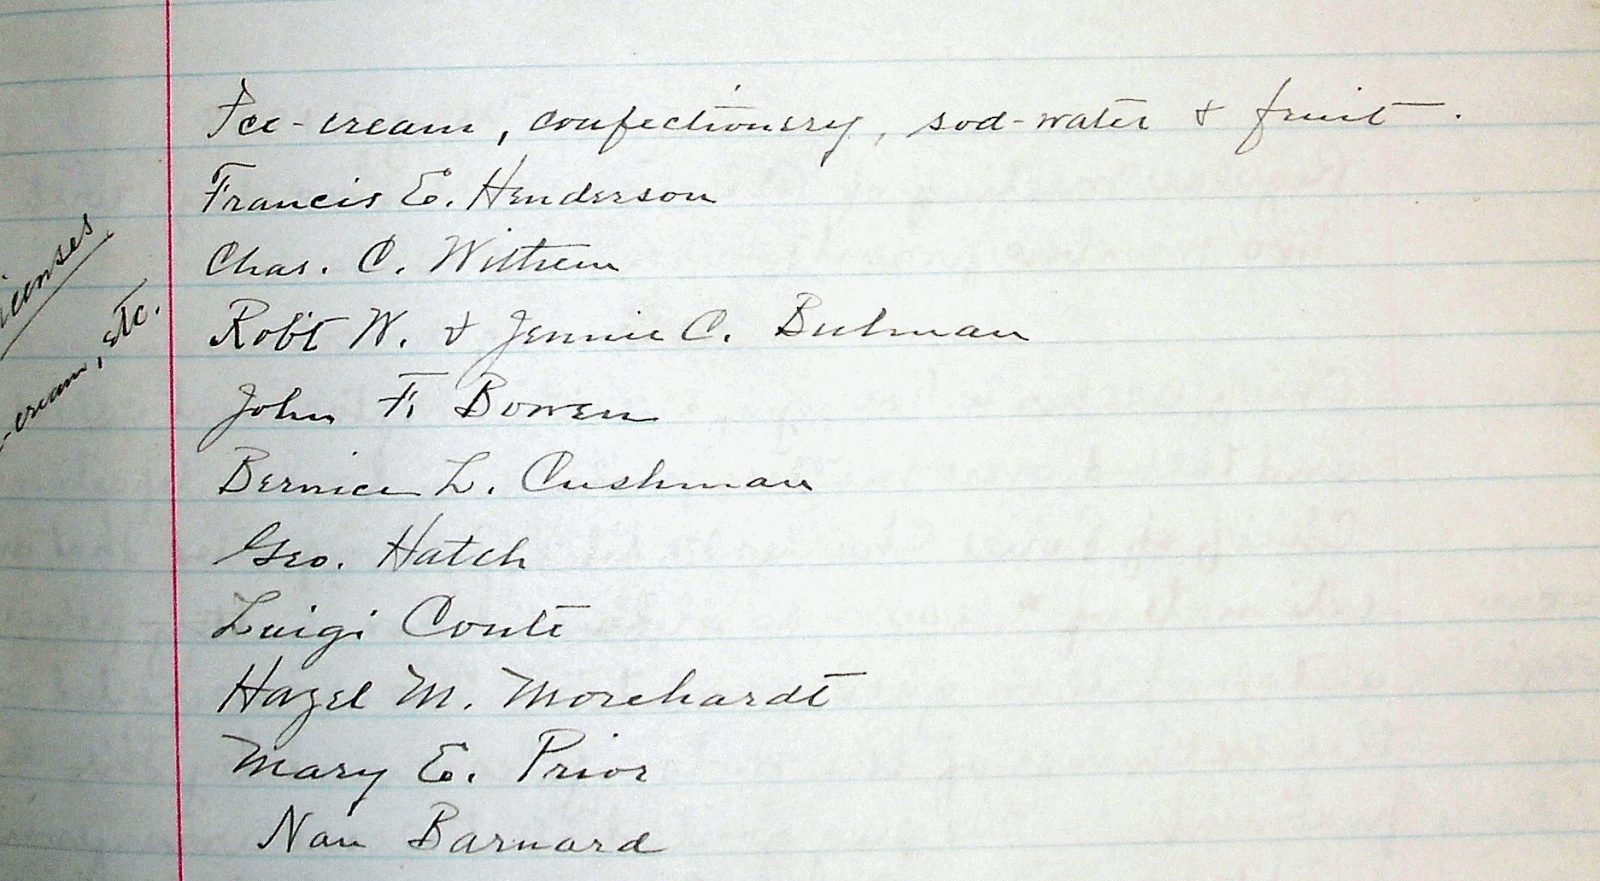 Ice-cream, confectionery, sod-water & fruit.
Francis E. Henderson
Chas. C.
Rob't W. & Jennie C. Bulman
John F. Bowen
Bernice L. Cushman
Geo. Hatch
Luigi Conte
Hazel M. Morehardt
Mary E. Prior
Nan Barnard
-cream, etc.